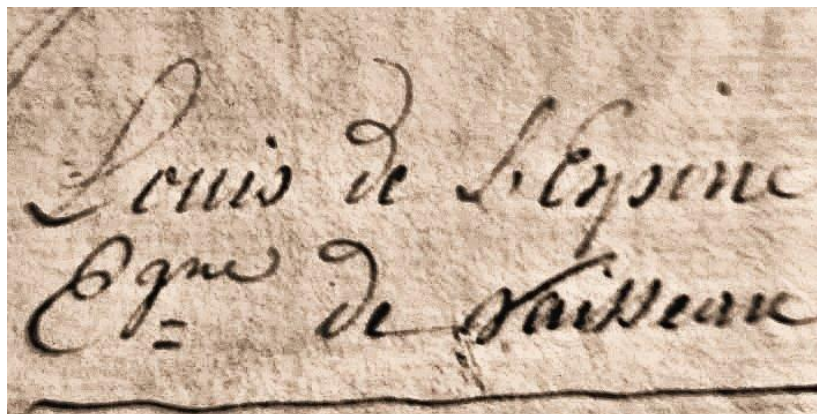 Louis de L'Espine
Egne de Vaisseau